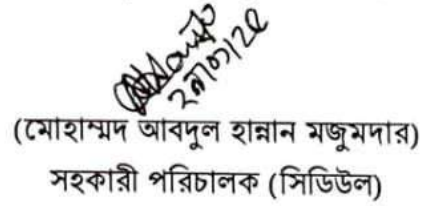 (মোহাম্মদ আবদুল হান্নান মজুমদার)
সহকারী পরিচালক (সিডিউল)